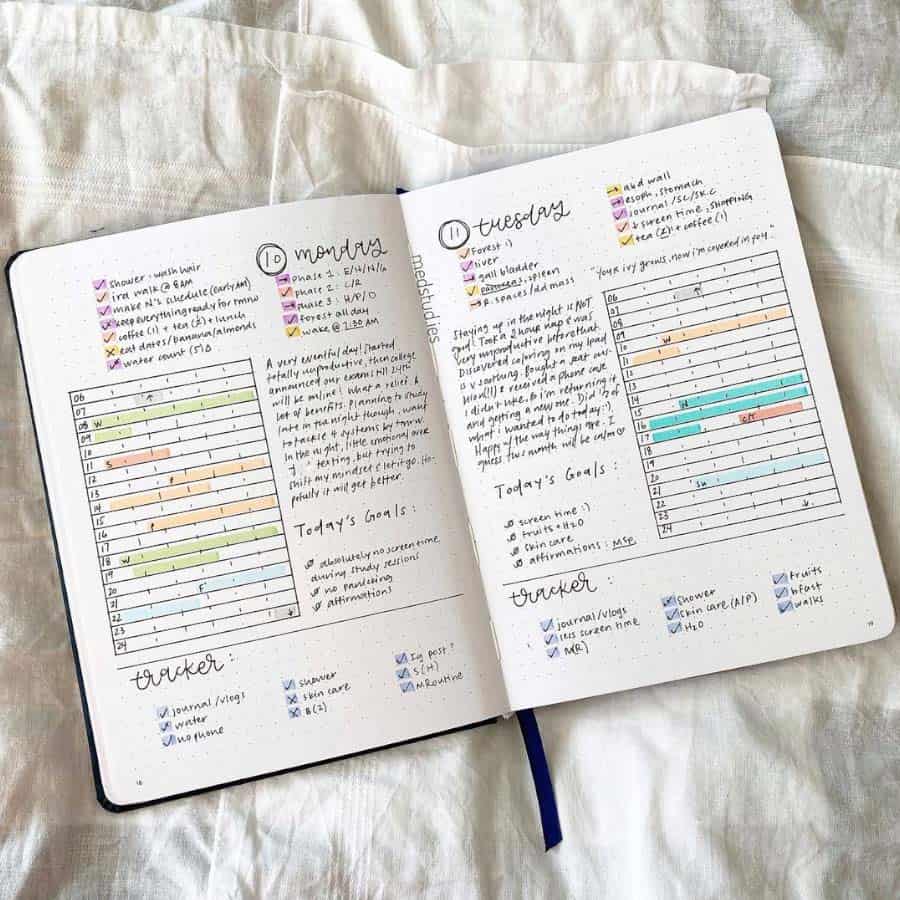 10 monday
shower + wash hair
ira walk @ 8AM
make N's schedule (early AM)
keep everything ready for tmrw
coffee (1) + tea (2) + lunch
eat dates/banana/almonds
water count (5)
phase 1 : E/H/N/G
phase 2 : L/R
phase 3 : H/P/O
forest all day
wake @ 2:30 AM
06
07
08 W
09
10
11 S
12
13 P
14
15
16 P
17
18 W
19
20
21 F
22
23
24
A very eventful day! Started
totally unproductive, then college
announced our exams till 24th
will be online! What a relief. A
lot of benefits. Planning to study
late in the night though, want
to tackle 4 systems by tmrw.
In the night, little emotional over
texting, but trying to
shift my mindset & let it go. Ho-
pefully it will get better.
Today's Goals :
absolutely no screen time
during study sessions
no panicking
affirmations
tracker :
journal/vlogs
water
no phone
shower
skin care
B(2)
Ig post?
S(H)
MRoutine
medstudies
11 tuesday
Forest :)
liver
gall bladder
pancreas, spleen
R. spaces/ad mass
abd wall
esoph, stomach
journal/SC/SK.C
↓ screen time, SHOPPING
tea (2) + coffee (1)
"your ivy grows, now i'm covered in you"
Staying up in the night is NOT
good! Took a 3 hour nap & was
very unproductive before that.
Discovered coloring on my ipad
is v soothing. Bought a seat cus-
hion(!!) & received a phone case
i didn't like, so i'm returning it
and getting a new one. Did 1/2 of
what i wanted to do today :').
Happy w the way things are. I
guess this month will be calm
06
07
08
09
10 W
11
12
13
14
15 W
16
17 C/T
18
19
20
21 Su
22
23
24
Today's Goals :
screen time :)
fruits + H2O
skin care
affirmations : MSP.
tracker :
journal/vlogs
less screen time
M(R)
shower
skin care (A/P)
H2O
fruits
bfast
walks